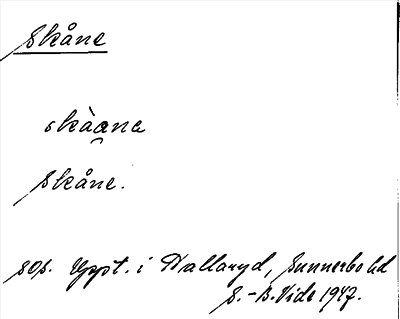 Skåne
skàa̯na
Skåne.
sos. Uppt. i Hallaryd, Sunnerbo hd
S.-B. Vide 1947.